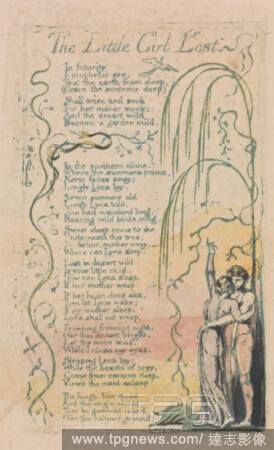 The Little Girl Lost
In futurity
I prophetic see,
That the earth from sleep,
(Grave the sentence deep)
Shall arise and seek
For her maker meek:
And the desart wild
Become a garden mild.
In the southern clime,
Where the summers prime,
Never fades away;
Lovely Lyca lay.
Seven summers old
Lovely Lyca told,
She had wanderd long,
Hearing wild birds song.
Sweet sleep come to me
Underneath this tree;
Do father, mother weep.
Where can Lyca sleep.
Lost in desart wild
Is your little child.
How can Lyca sleep,
If her mother weep.
If her heart does ake,
Then let Lyca wake;
If my mother sleep,
Lyca shall not weep.
Frowning frowning night,
O'er this desart bright,
Let thy moon arise,
While I close my eyes.
Sleeping Lyca lay:
While the beasts of prey,
Come from caverns deep,
View'd the maid asleep
The kingly lion stood
And the virgin view'd,
Then he gambold round
O'er the hallowd ground:
TPG
www.tpgnews.com/達志影像